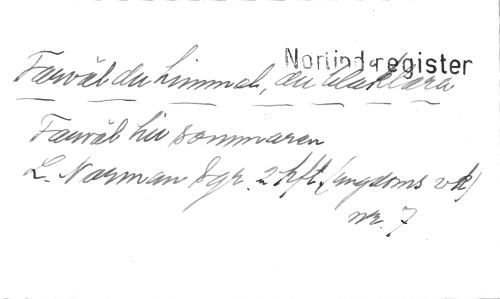 Nortinda register
Farväl du himmel, du blåklara
Farväl hur sommaren
L. Norman Sgr. 2 hft. (ungdoms vk)
nr. 7